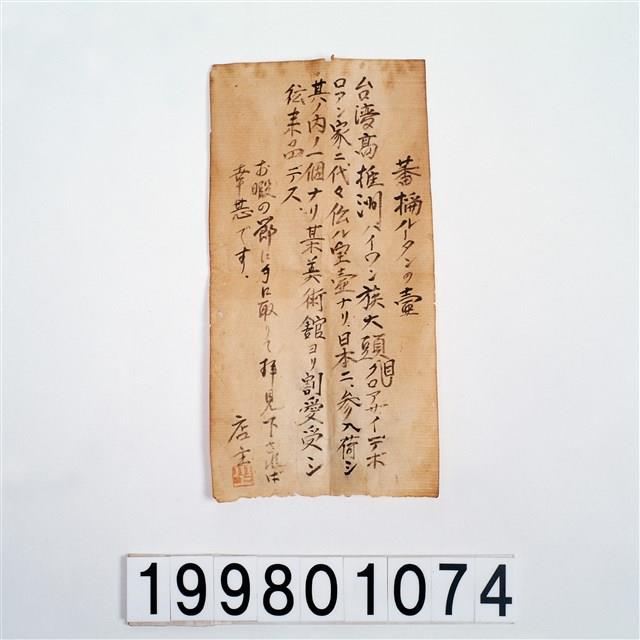 蕃称ルータンの壷
台湾高雄洲パイワン族大頭目クロアザイデボ
ロァン家ニ代々伝ル宝壷ナリ、日本ニ、参入荷シ
其ノ内ノ一個ナリ某美術館ヨリ割愛受シ
伝来品デス、
お暇の節に手に取りて拝見下されば
幸甚です.
店主
199801074